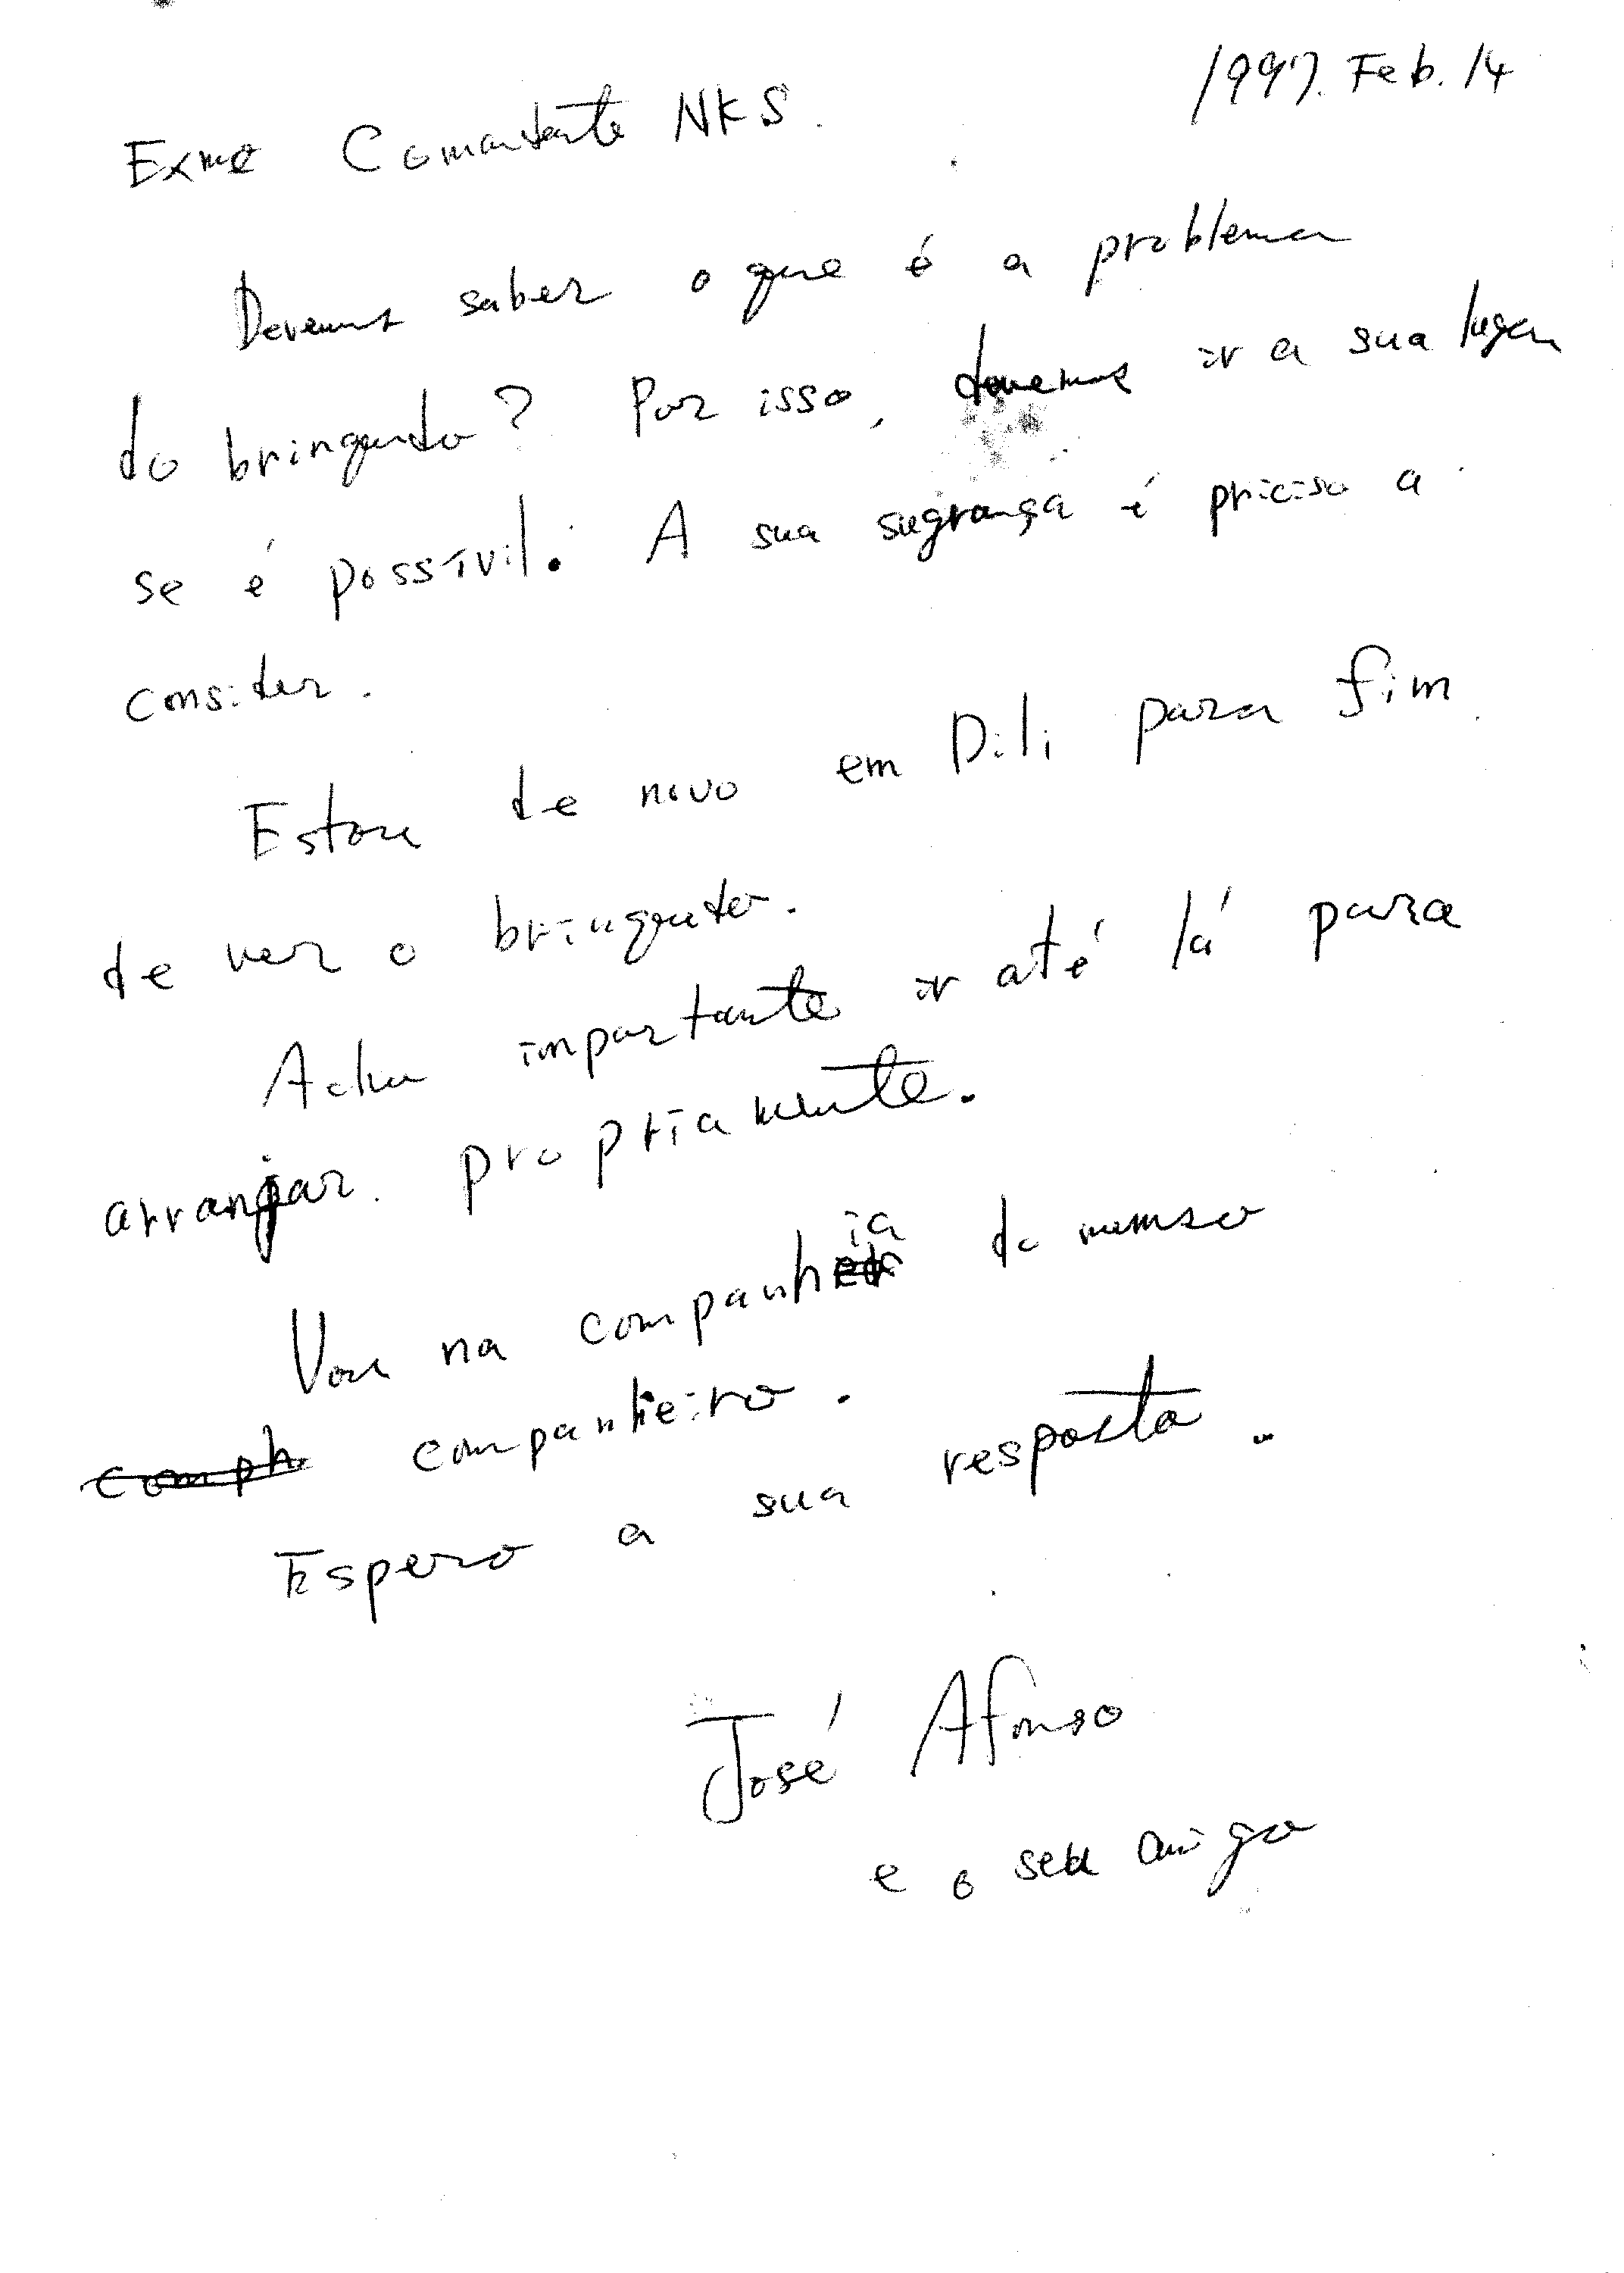 1997. Feb. 14
Exmo Comandante NKS.
Devemos saber o que é a problema
do bringuedo? Por isso, devemos ir a sua lugar
se é possívil. A sua sugrança é priciso a
consider.
Estou de novo em Dili para fim
de ver o bringuedo.
Acho importante ir até lá para
arranjar propriamente.
Vou na companhia do memso
comph companheiro.
Espero a sua resposta.
José Afonso
e o seu amigo